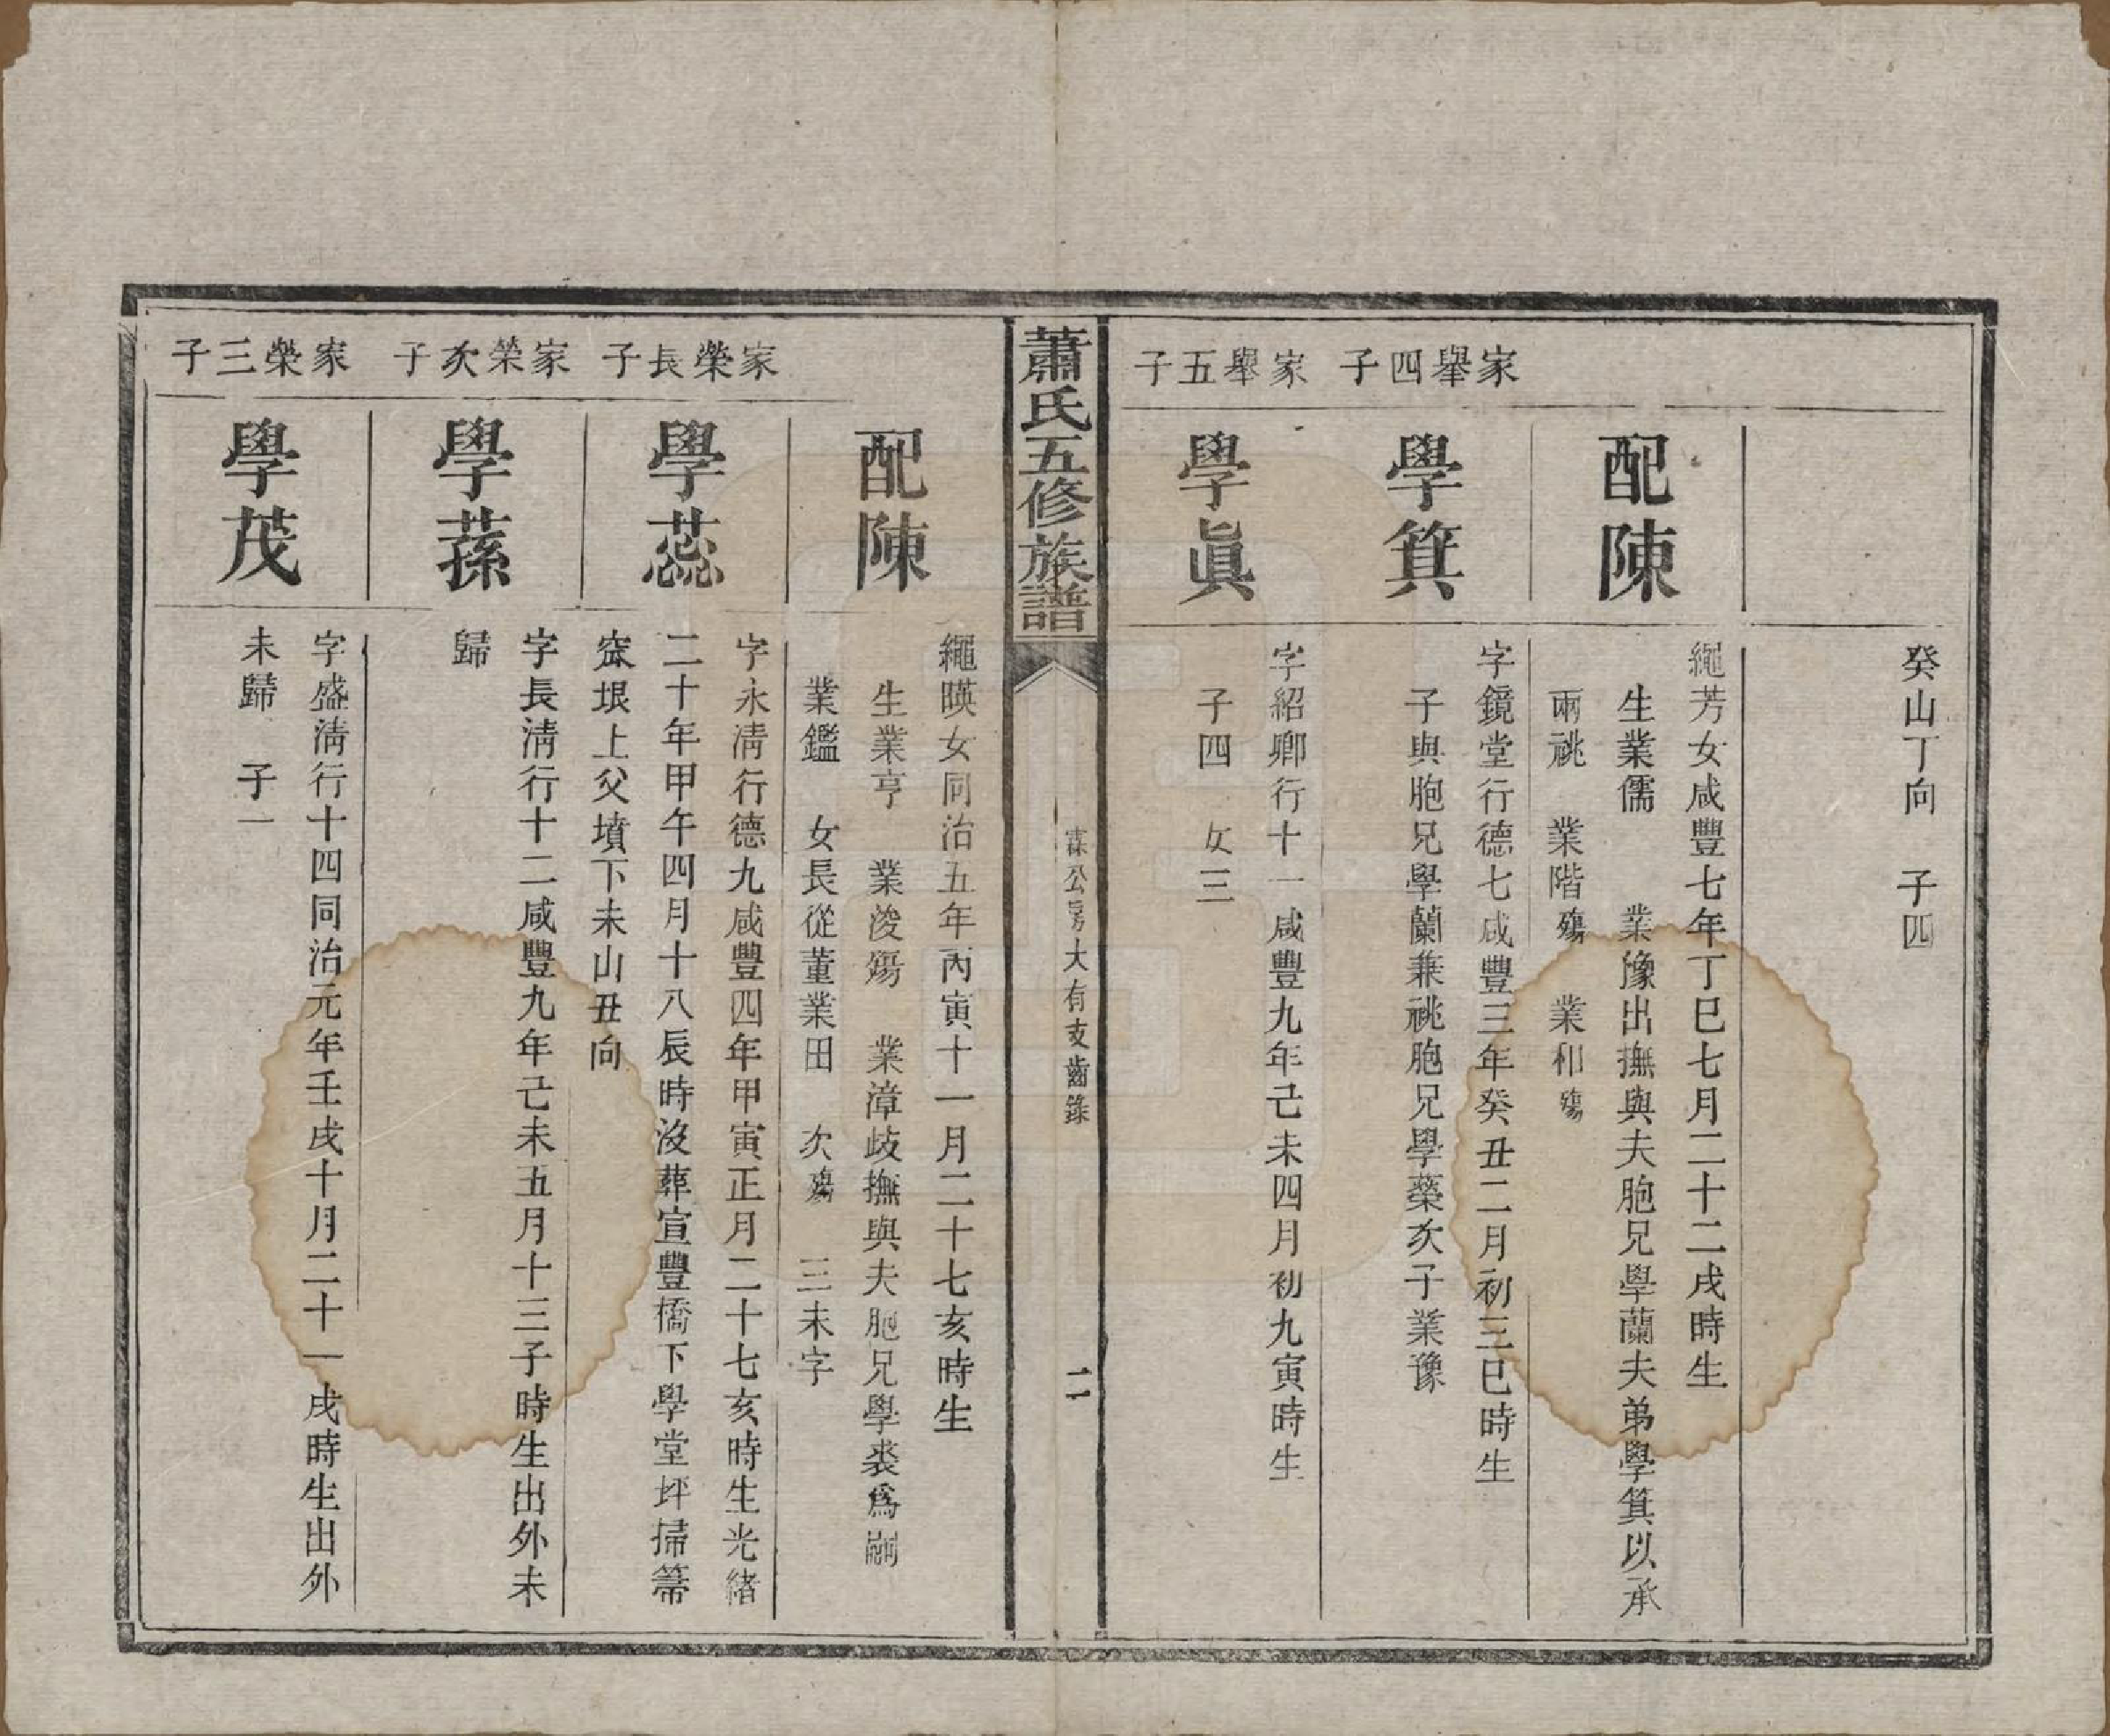 癸山丁向　子四
配陳
繩芳女咸豐七年丁巳七月二十二戌時生
生業儒　業豫出撫與夫胞兄學蘭夫弟學箕以承
兩祧　業階殤　業和殤
家舉四子
學箕
字鏡堂行德七咸豐三年癸丑二月初三巳時生
子與胞兄學蘭兼祧胞兄學藥次子業豫
家舉五子
學眞
字紹卿行十一咸豐九年己未四月初九寅時生
子四　女三
蕭氏五修族譜
霖公房大有支齒錄
二
配陳
繩暎女同治五年丙寅十一月二十七亥時生
生業亨　業浚殤　業漳歧撫與夫胞兄學裘爲嗣
業鑑　女長從董業田　次殤　三未字
家榮長子
學蕊
字永淸行德九咸豐四年甲寅正月二十七亥時生光緖
二十年甲午四月十八辰時沒葬宣豐橋下學堂坪掃箒
窊垠上父墳下未山丑向
家榮次子
學蓀
字長淸行十二咸豐九年己未五月十三子時生出外未
歸
家榮三子
學茂
字盛淸行十四同治元年壬戌十月二十一戌時生出外
未歸　子一